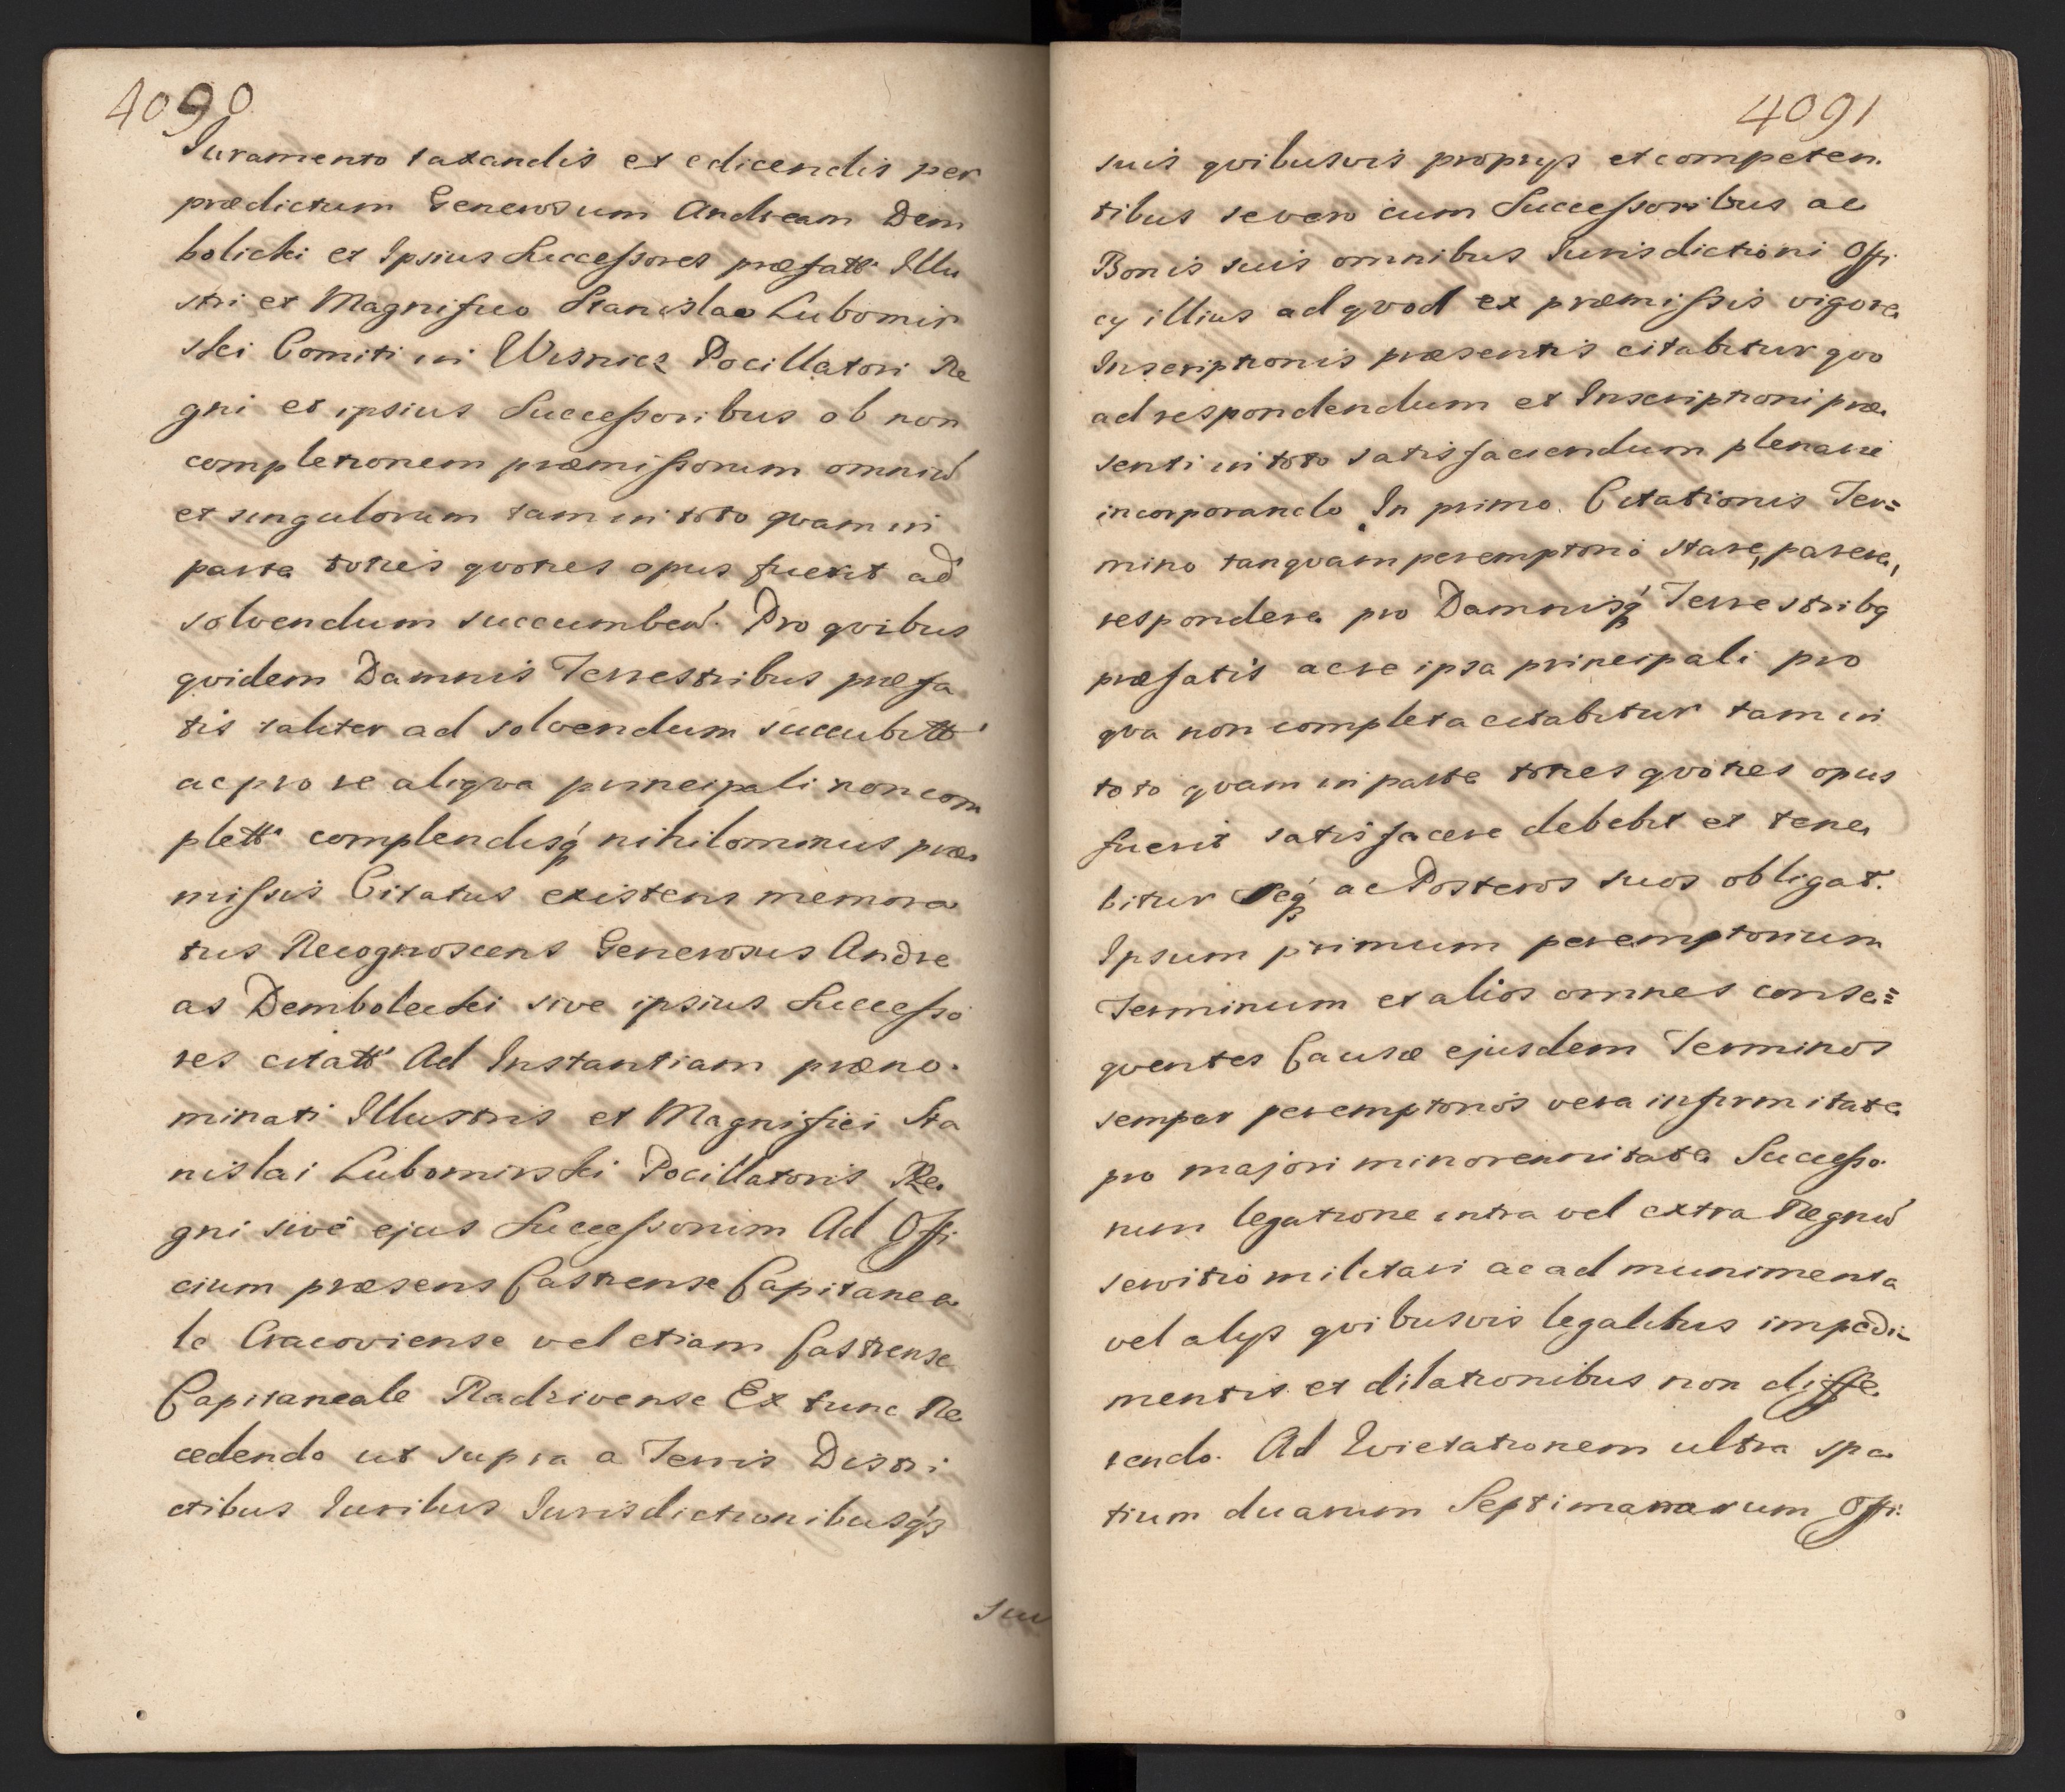 4090
Juramento taxandis et edicendis per
prædictum Generosum Andream Dem
bolicki et Ipsius Successores præfatt. Illu
stri et Magnifico Stanislao Lubomir
ski Comiti in Wisnicz Pocillatori Re
gni et ipsius Successoribus ob non
completionem præmissorum omniū
et singulorum tam in toto qvam in
parte toties qvoties opus fuerit ad
solvendum succumben. Pro qvibus
qvidem Damnis Terrestribus præfa
tis taliter ad solvendum succubitt
ac pro re aliqva principali non com
plett. complendisq nihilominus præ
missis Citatus existens memora
tus Recognoscens Generosus Andre
as Dembolecki sive ipsius Successo
res citatt Ad Instantiam præno.
minati Illustris et Magnifici Sta
nislai Lubomirski Pocillatoris Re.
gni sive ejus Successorum Ad Offi
cium præsens Castrense Capitanea
le Cracoviense vel etiam Castrense
Capitaneale Radzivense Ex tunc Re
cedendo ut supra a Terris Distri
ctibus Juribus Jurisdictionibusq
sui
4091
suis qvibusvis proprys et competen.
tibus severo cum Successoribus ac
Bonis suis omnibus Jurisdictioni Offi
cy illius ad qvod ex præmissis vigore
Inscriptionis præsentis citabitur qvo
ad respondendum et Inscriptioni præ.
senti in toto satisfaciendum plenarie
incorporando. In primo. Citationis Ter=
mino tanqvam peremptorio stare, parere,
respondere pro Damnisq Terrestribq
præfatis ac re ipsa principali pro
qva non completa citabitur tam in
toto qvam in parte toties qvoties opus
fuerit satisfacere debebit et tene
bitur Seq ac Posteros suos obligat.
Ipsum primum peremptorium
Terminum et alios omnes conse=
qventes Causæ ejusdem Terminos
semper peremptorios vera infirmitate
pro majori minorennitate Successo.
rum legatione intra vel extra Regnū
servitio militari ac ad munimenta
vel alys qvibusvis legalibus impedi-
mentis et dilationibus non diffe.
rendo. Ad Evictationem ultra spa
tium duarum Septimanarum Offi: